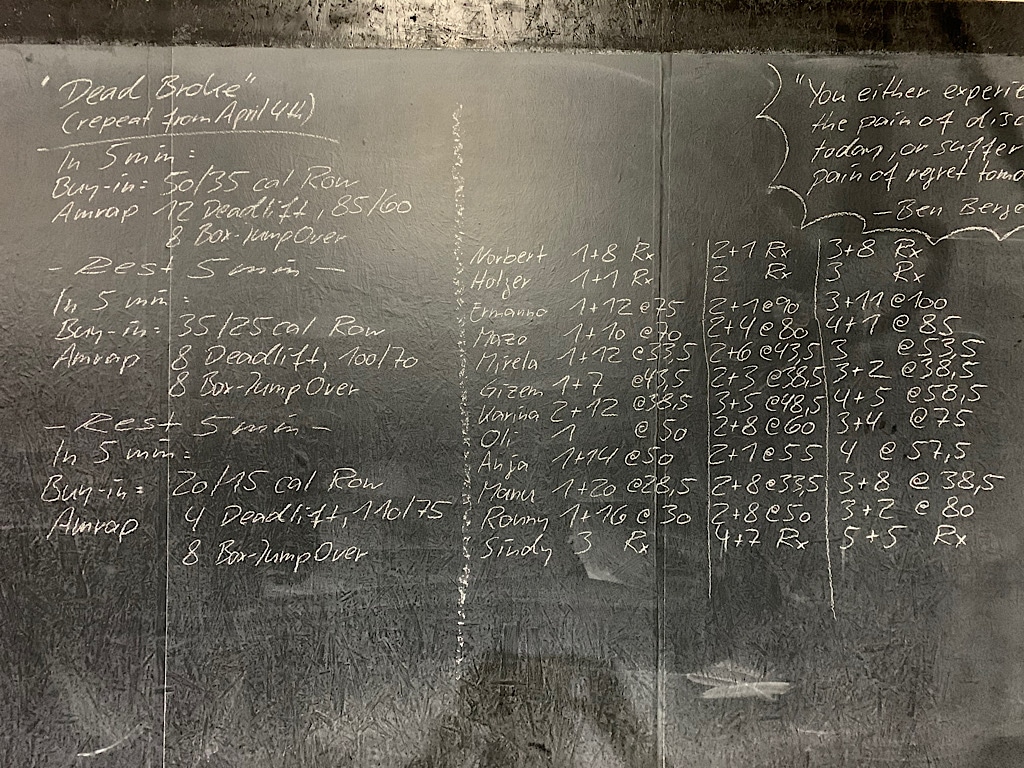 "Dead Broke"
(repeat from April 4th)
In 5 min:
Buy-in: 50/35 cal Row
Amrap 12 Deadlift, 85/60
8 Box-Jump Over
- Rest 5 min -
In 5 min:
Buy-in: 35/25 cal Row
Amrap 8 Deadlift, 100/70
8 Box-Jump Over
- Rest 5 min -
In 5 min:
Buy-in: 20/15 cal Row
Amrap 4 Deadlift, 110/75
8 Box-Jump Over
"You either experie
the pain of disc
today, or suffer
pain of regret tomo
- Ben Berge
Norbert 1+8 Rx 2+1 Rx 3+8 Rx
Holger 1+1 Rx 2 Rx 3 Rx
Ermanno 1+12 @75 2+1 @90 3+11 @100
Mazo 1+10 @70 2+4 @80 4+1 @ 85
Mirela 1+12 @33,5 2+6 @43,5 3 @53,5
Gizem 1+7 @43,5 2+3 @38,5 3+2 @38,5
Karina 2+12 @38,5 3+5 @48,5 4+5 @58,5
Oli 1 @ 50 2+8 @60 3+4 @ 75
Anja 1+14 @50 2+1 @55 4 @ 57,5
Manu 1+20 @28,5 2+8 @33,5 3+8 @ 38,5
Ronny 1+16 @ 30 2+8 @50 3+2 @ 80
Sindy 3 Rx 4+7 Rx 5+5 Rx